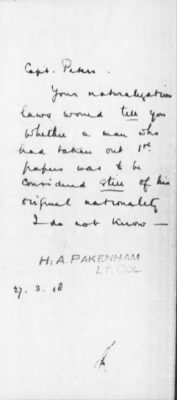 Capt. Peters.
Your naturalization
laws would tell you
whether a man who
had taken out 1st
papers was to be
considered still of his
original nationality
I do not know —
H. A. PAKENHAM
LT. COL.
27. 3. 18